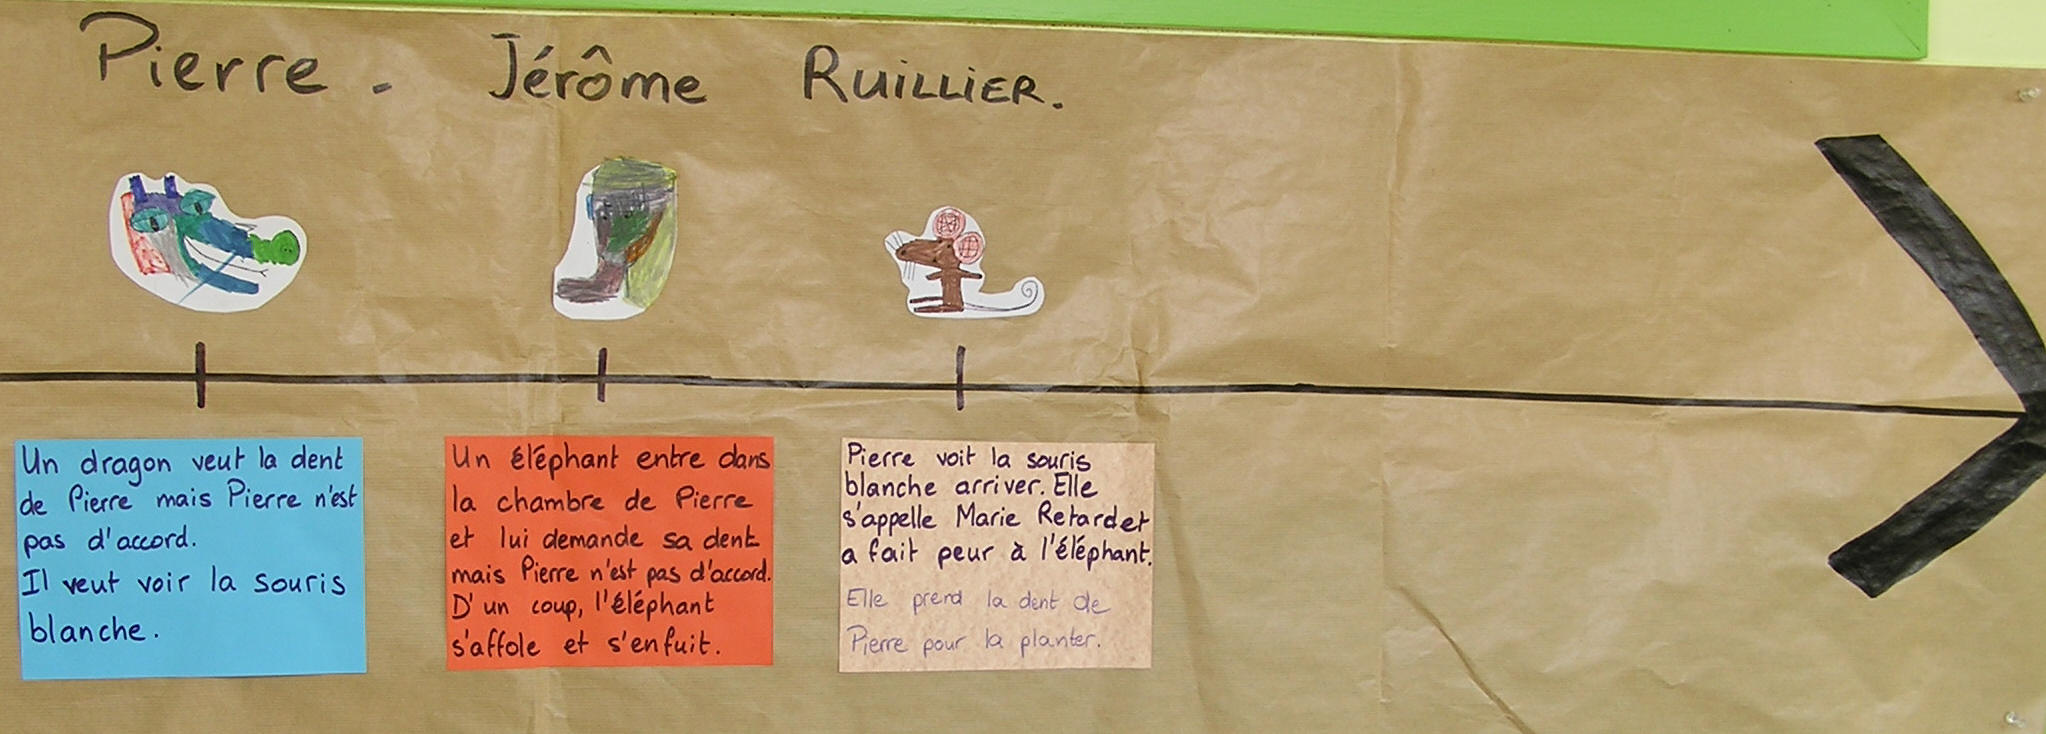 Pierre. Jérôme RUILLIER.
Un dragon veut la dent
de Pierre mais Pierre n'est
pas d'accord.
Il veut voir la souris
blanche.
Un éléphant entre dans
la chambre de Pierre
et lui demande sa dent
mais Pierre n'est pas d'accord.
D'un coup, l'éléphant
s'affole et s'enfuit.
Pierre voit la souris
blanche arriver. Elle
s'appelle Marie Retard et
a fait peur à l'éléphant.
Elle prend la dent de
Pierre pour la planter.